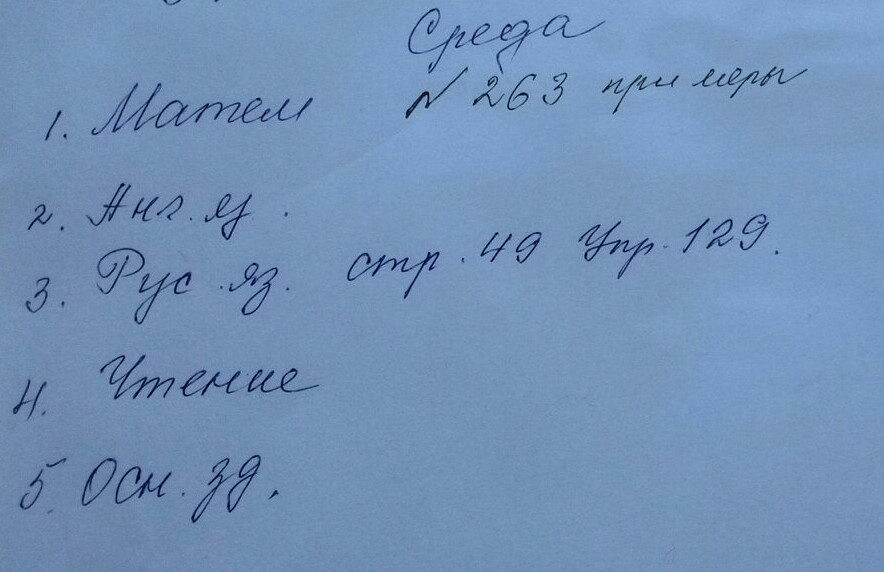 Среда
1. Матем № 263 примеры
2. Анг. яз.
3. Рус. яз. стр. 49 Упр. 129.
4. Чтение
5. Осн. зд.